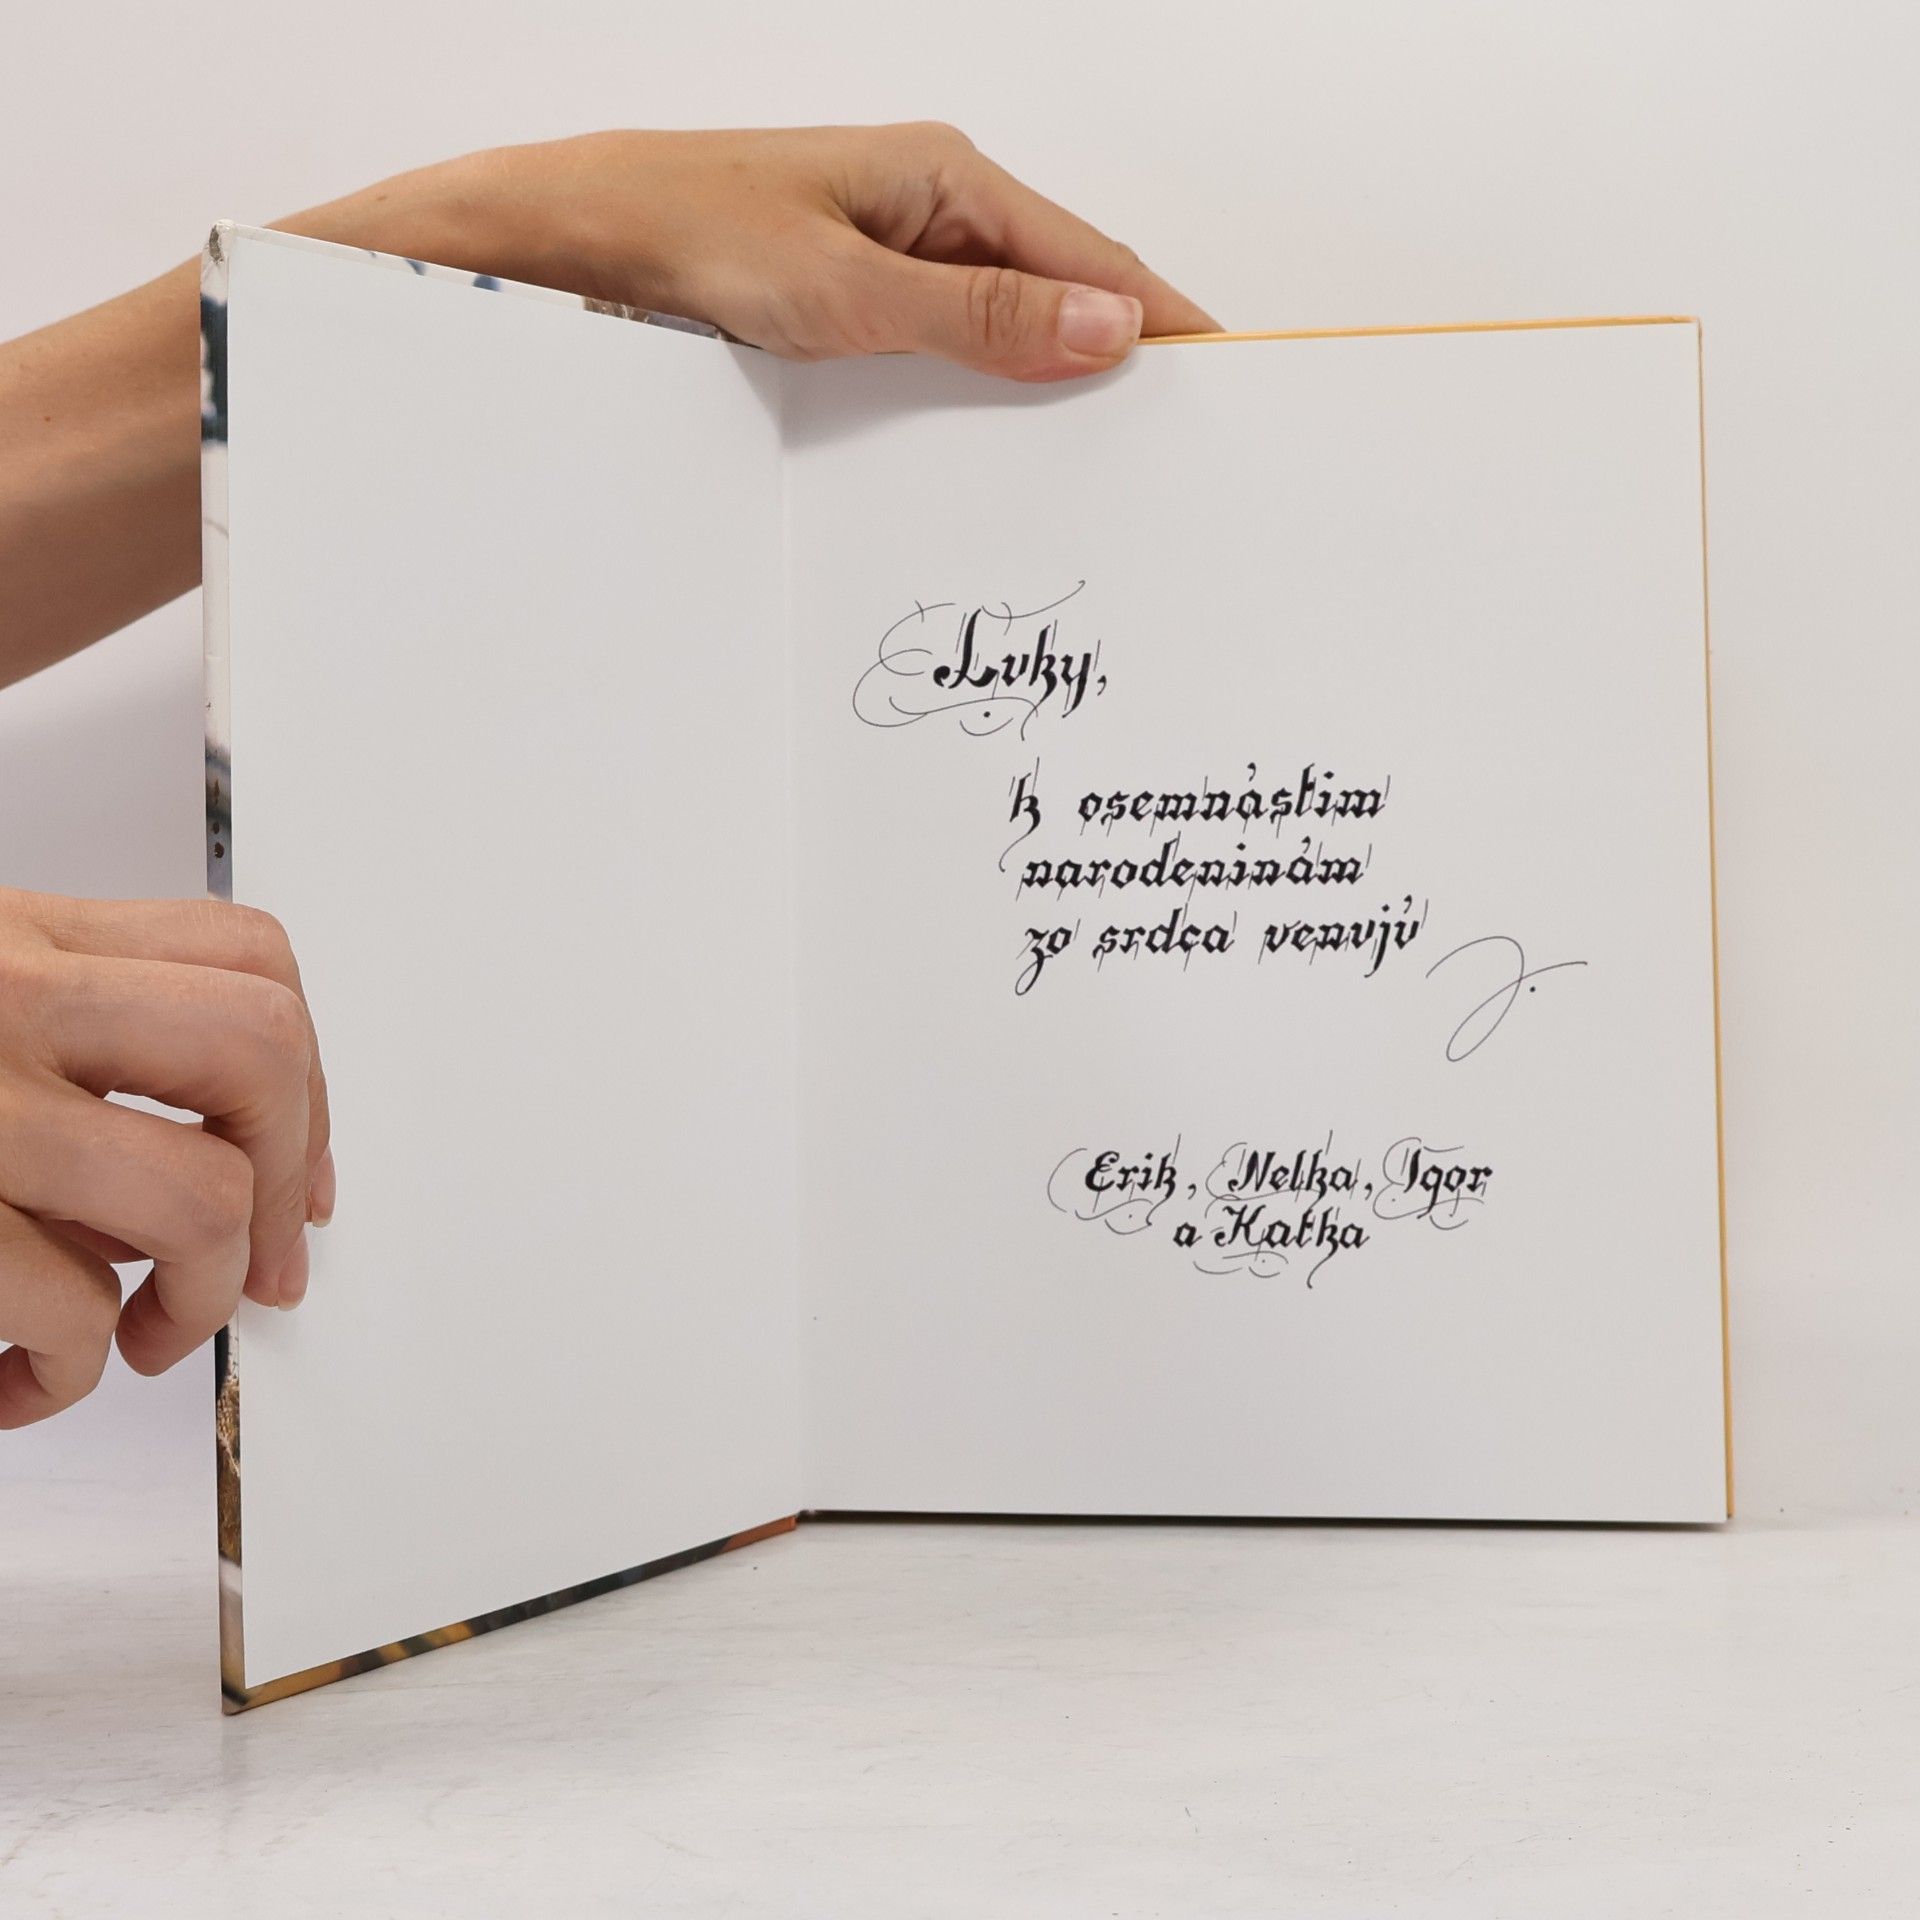 Luky,
k osemnástim
narodeninám
zo srdca venujú
Erik, Nelka, Igor
a Katka